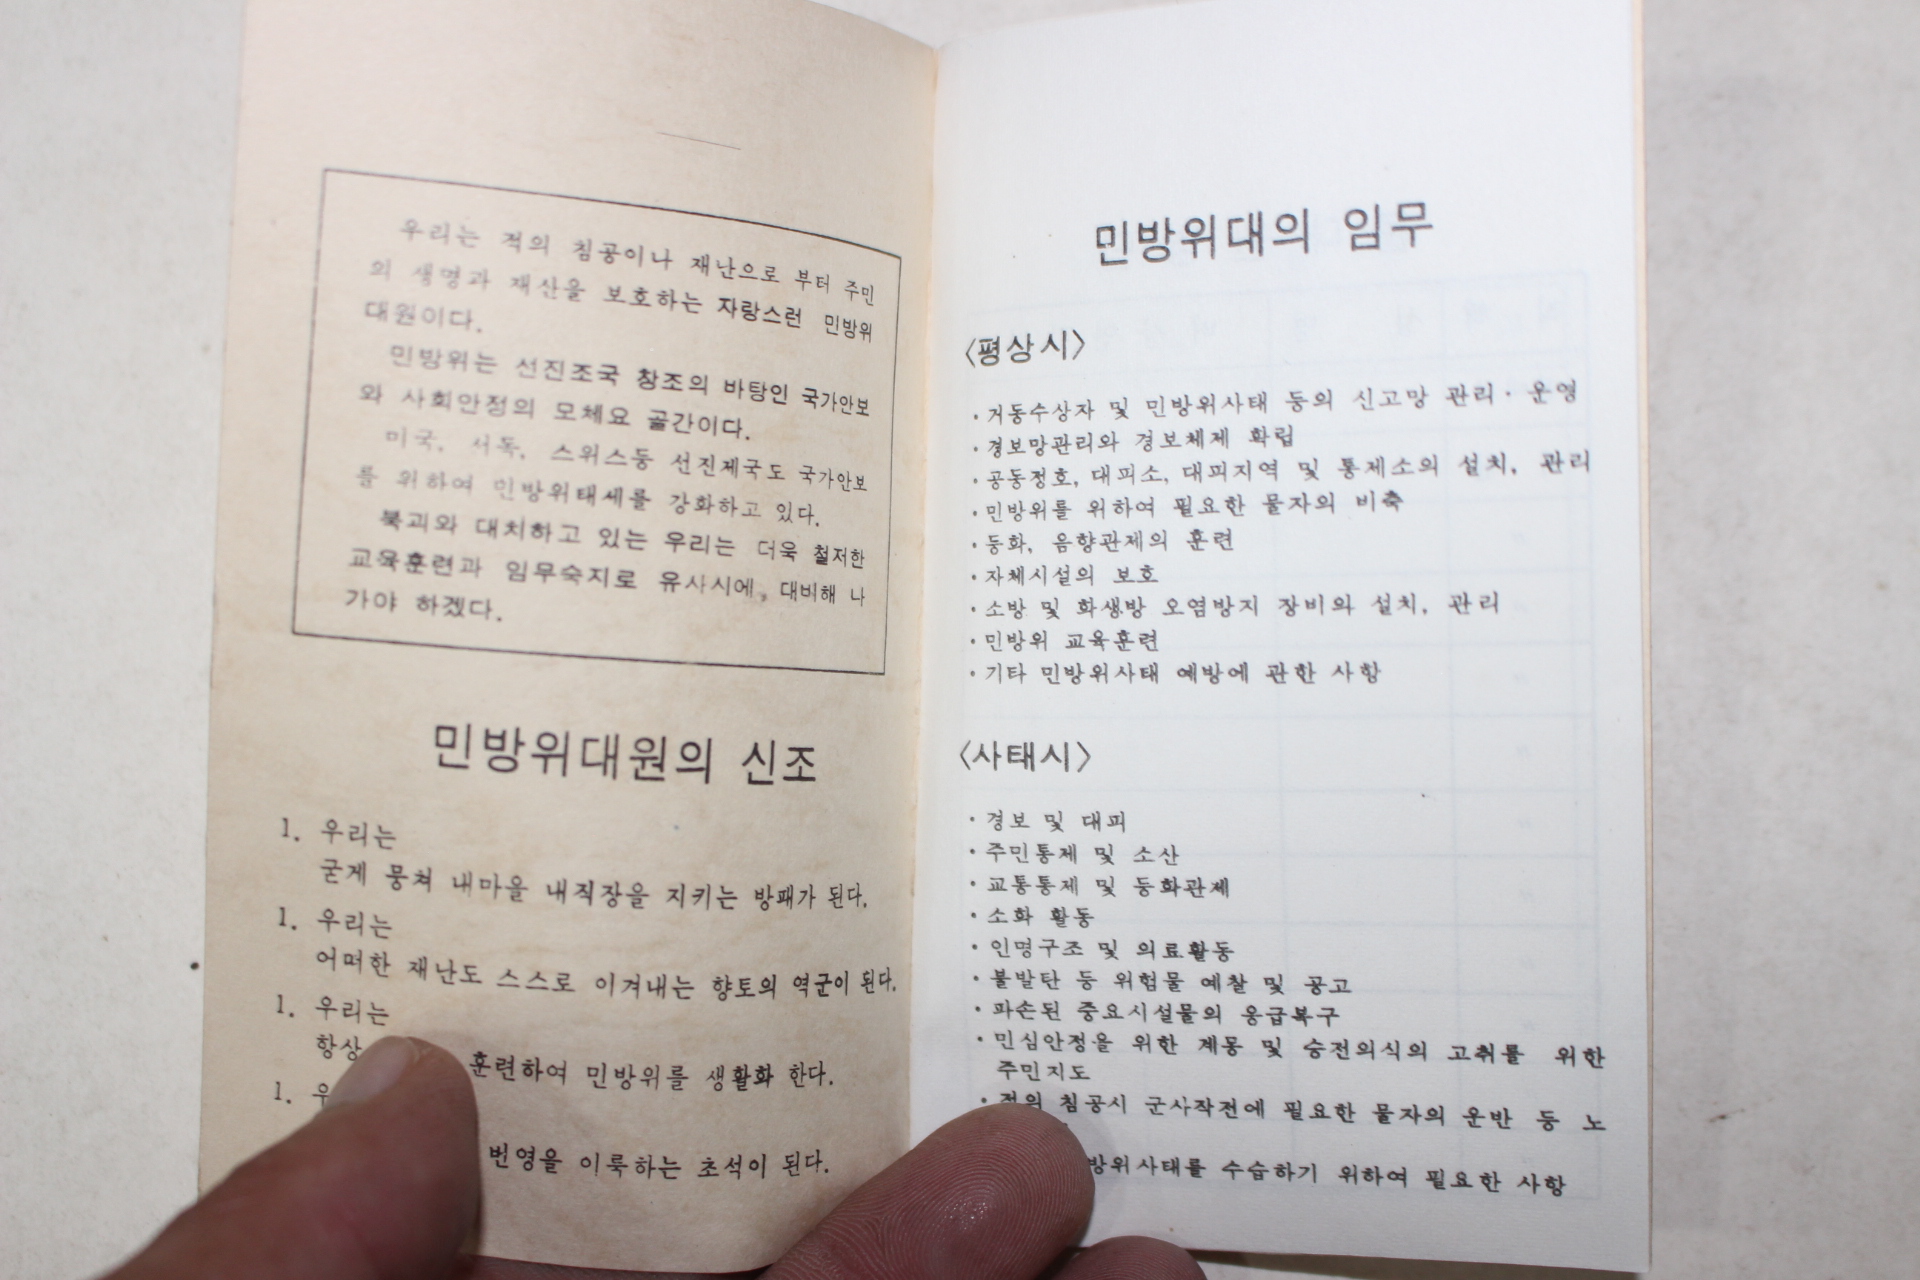 우리는 적의 침공이나 재난으로 부터 주민
의 생명과 재산을 보호하는 자랑스런 민방위
대원이다.
민방위는 선진조국 창조의 바탕인 국가안보
와 사회안정의 모체요 골간이다.
미국, 서독, 스위스등 선진제국도 국가안보
를 위하여 민방위태세를 강화하고 있다.
북괴와 대치하고 있는 우리는 더욱 철저한
교육훈련과 임무숙지로 유사시에, 대비해 나
가야 하겠다.
민방위대원의 신조
1. 우리는
굳게 뭉쳐 내마을 내직장을 지키는 방패가 된다.
1. 우리는
어떠한 재난도 스스로 이겨내는 향토의 역군이 된다.
1. 우리는
항상 훈련하여 민방위를 생활화 한다.
1. 우
번영을 이룩하는 초석이 된다.
민방위대의 임무
〈평상시〉
· 거동수상자 및 민방위사태 등의 신고망 관리 · 운영
· 경보망관리와 경보체제 확립
· 공동정호, 대피소, 대피지역 및 통제소의 설치, 관리
· 민방위를 위하여 필요한 물자의 비축
· 등화, 음향관제의 훈련
· 자체시설의 보호
· 소방 및 화생방 오염방지 장비와 설치, 관리
· 민방위 교육훈련
· 기타 민방위사태 예방에 관한 사항
〈사태시〉
· 경보 및 대피
· 주민통제 및 소산
· 교통통제 및 등화관제
· 소화 활동
· 인명구조 및 의료활동
· 불발탄 등 위험물 예찰 및 공고
· 파손된 중요시설물의 응급복구
· 민심안정을 위한 계몽 및 승전의식의 고취를 위한
주민지도
· 적의 침공시 군사작전에 필요한 물자의 운반 등 노
방위사태를 수습하기 위하여 필요한 사항